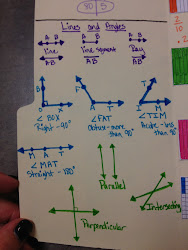 80 5
Lines and Angles
A B A B A B
line line segment Ray
AB AB AB
B F T
O X A T I M
∠BOX ∠FAT ∠TIM
Right - 90° Obtuse - more than 90° Acute - less than 90°
M A T
∠MAT
Straight - 180°
Parallel
Intersecting
Perpendicular